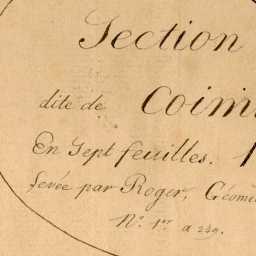 Section
dite de Coim
En Sept feuilles.
Levée par Roger, Géomè
N.° 1.er a 249.